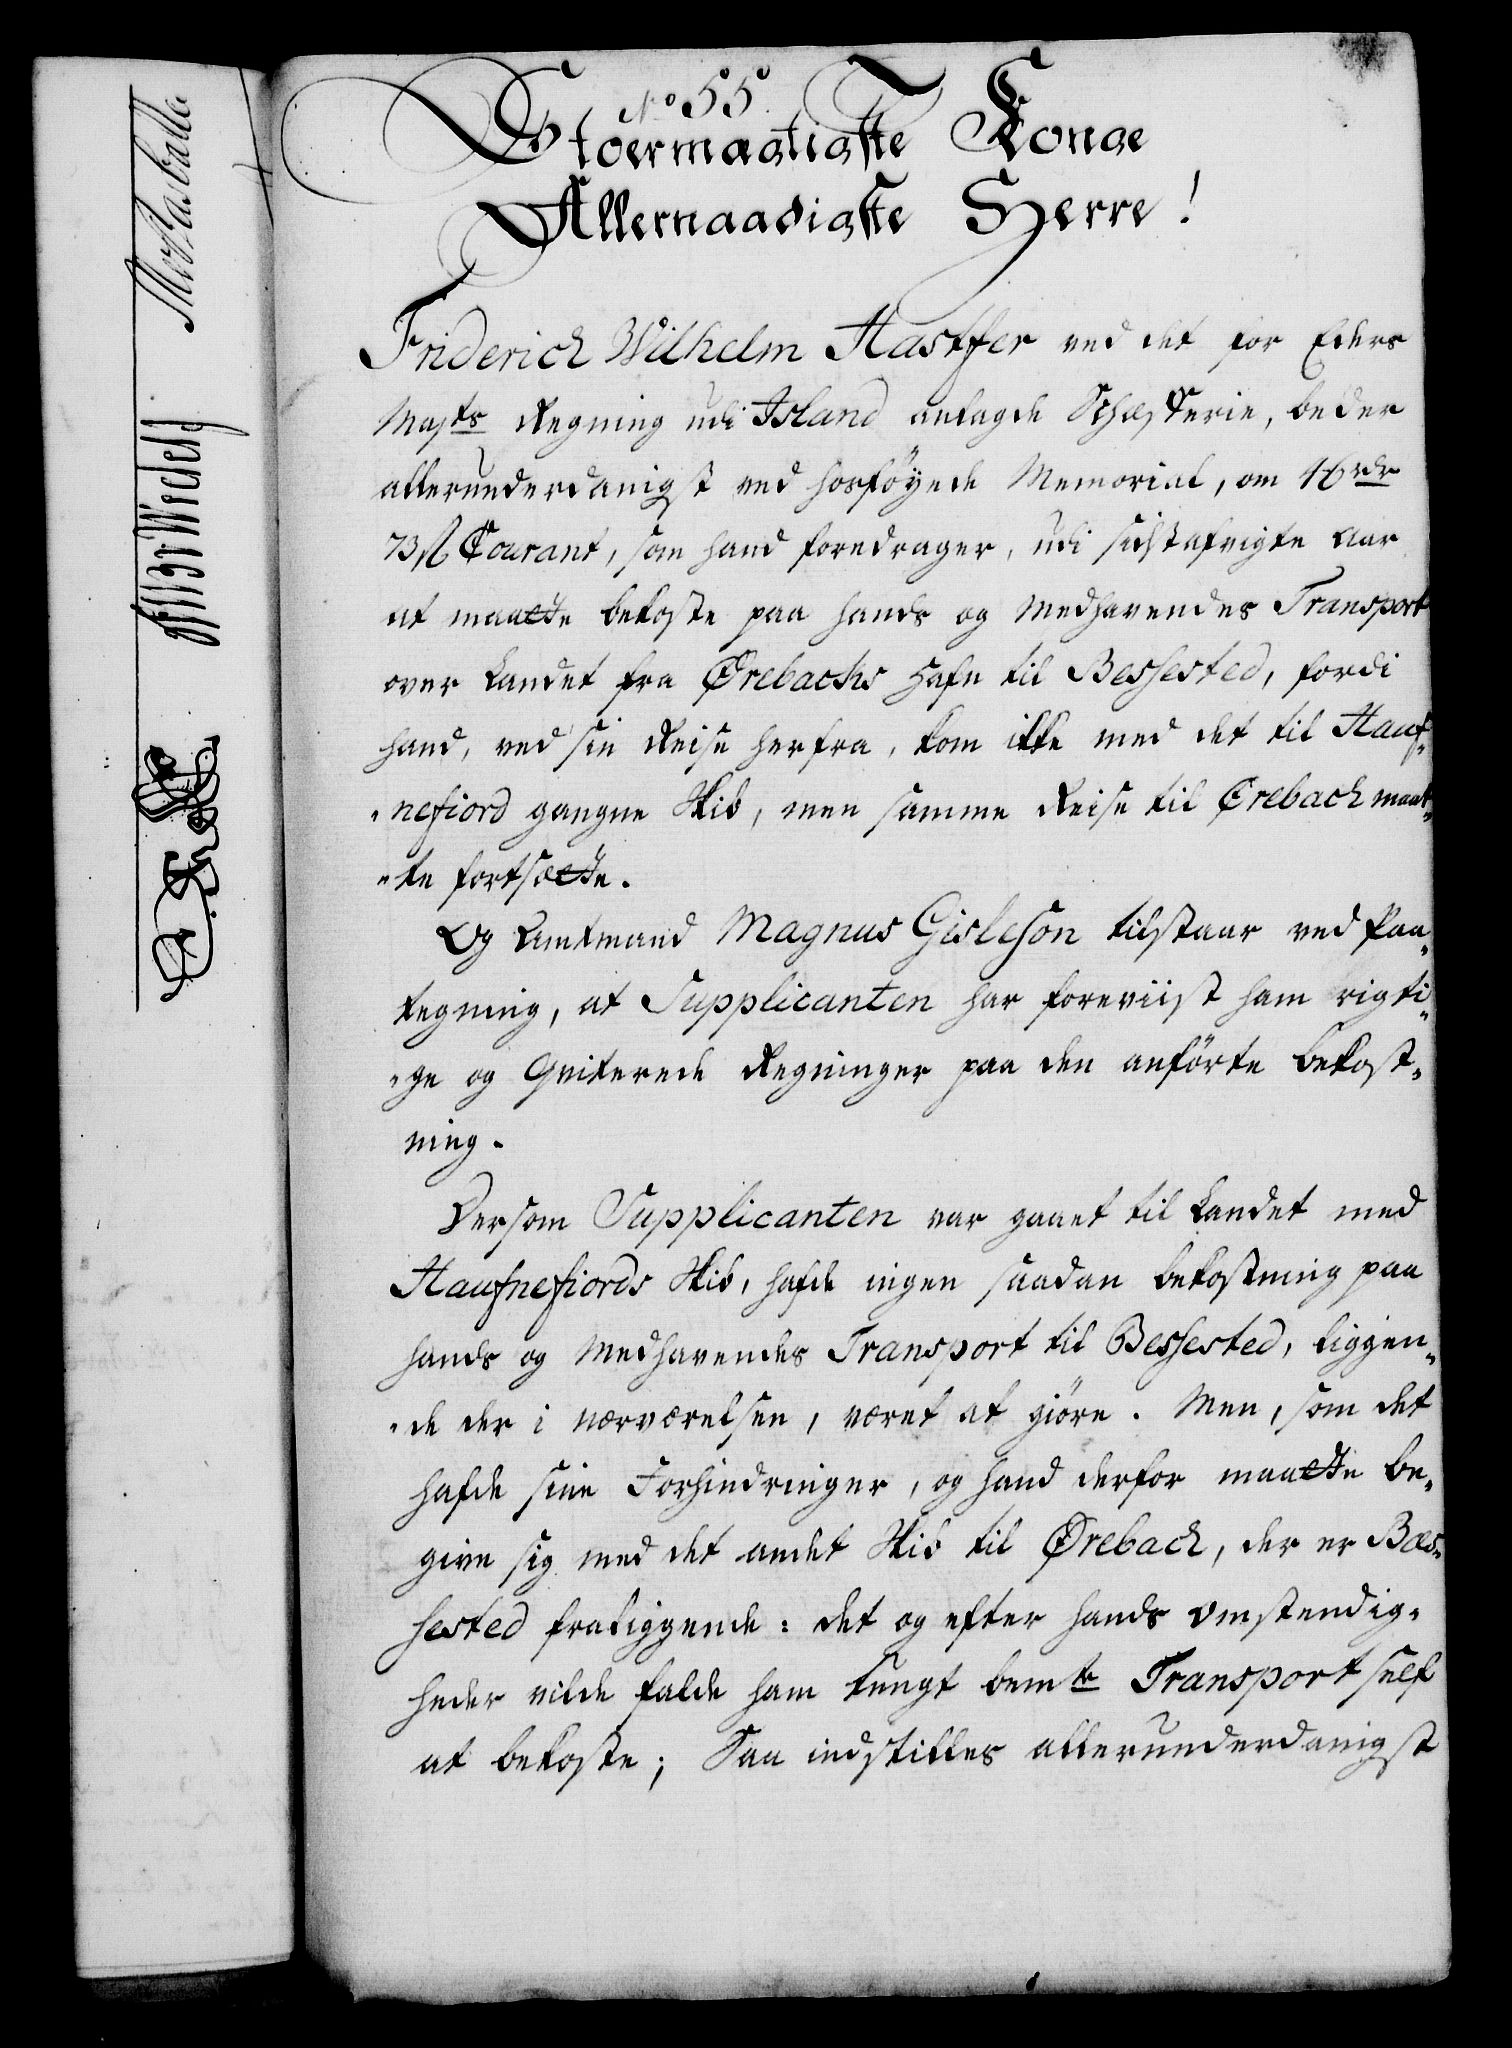 No 55.
Stoermægtigste Konge
Allernaadigste Herre!
Friderich Wilhelm Hastfer ved det for Eders
Mayts Regning udi Island anlagde Schæfferie, beder
allerunderdanigst ved hosföyede Memorial, om 46 rdr
73 ß Courant, som hand foredrager, udi sidstafvigte Aar
at maatte bekoste paa hands og Medhavendes Transport
over Landet fra Ørebachs Hafn til Bessested, fordi
hand, ved sin Reise herfra, kom ikke med det til Hauf-
nefiord gangne Skib, men samme Reise til Ørebach maat-
te fortsætte.
Og Amtmand Magnus Gisleson tilstaar ved Paa-
tegning, at Supplicanten har foreviist ham rigti-
ge og Qviterede Regninger paa den anförte bekost-
ning.
Dersom Supplicanten var gaaet til Landet med
Haufnefiords Skib, hafde ingen saadan bekostning paa
hands og Medhavendes Transport til Bessested, liggen-
de der i nærværelsen, været at giöre. Men, som det
hafde sine Forhindringer, og hand derfor maatte be-
give sig med det andet Skib til Ørebach, der er Bes-
sested fraliggende: det og efter hands Omstendig-
heder vilde falde ham tungt bemte Transport self
at bekoste; Saa indstilles allerunderdanigst